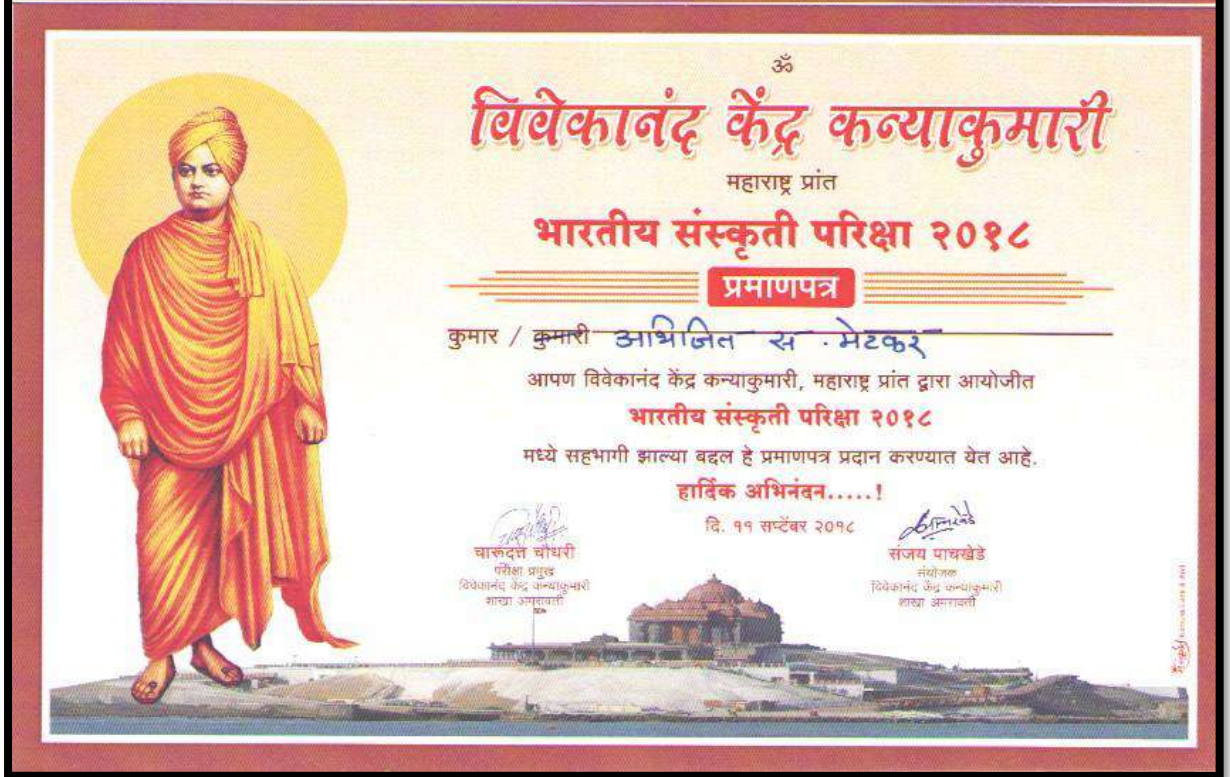 ॐ
विवेकानंद केंद्र कन्याकुमारी
महाराष्ट्र प्रांत
भारतीय संस्कृती परिक्षा २०१८
प्रमाणपत्र
कुमार / कुमारी अभिजित स. मेटकर
आपण विवेकानंद केंद्र कन्याकुमारी, महाराष्ट्र प्रांत द्वारा आयोजीत
भारतीय संस्कृती परिक्षा २०१८
मध्ये सहभागी झाल्या बद्दल हे प्रमाणपत्र प्रदान करण्यात येत आहे.
हार्दिक अभिनंदन.....!
दि. ११ सप्टेंबर २०१८
चारूदत्त चौधरी
परीक्षा प्रमुख
विवेकानंद केंद्र कन्याकुमारी
शाखा अमरावती
संजय पाचखेडे
संयोजक
विवेकानंद केंद्र कन्याकुमारी
शाखा अमरावती